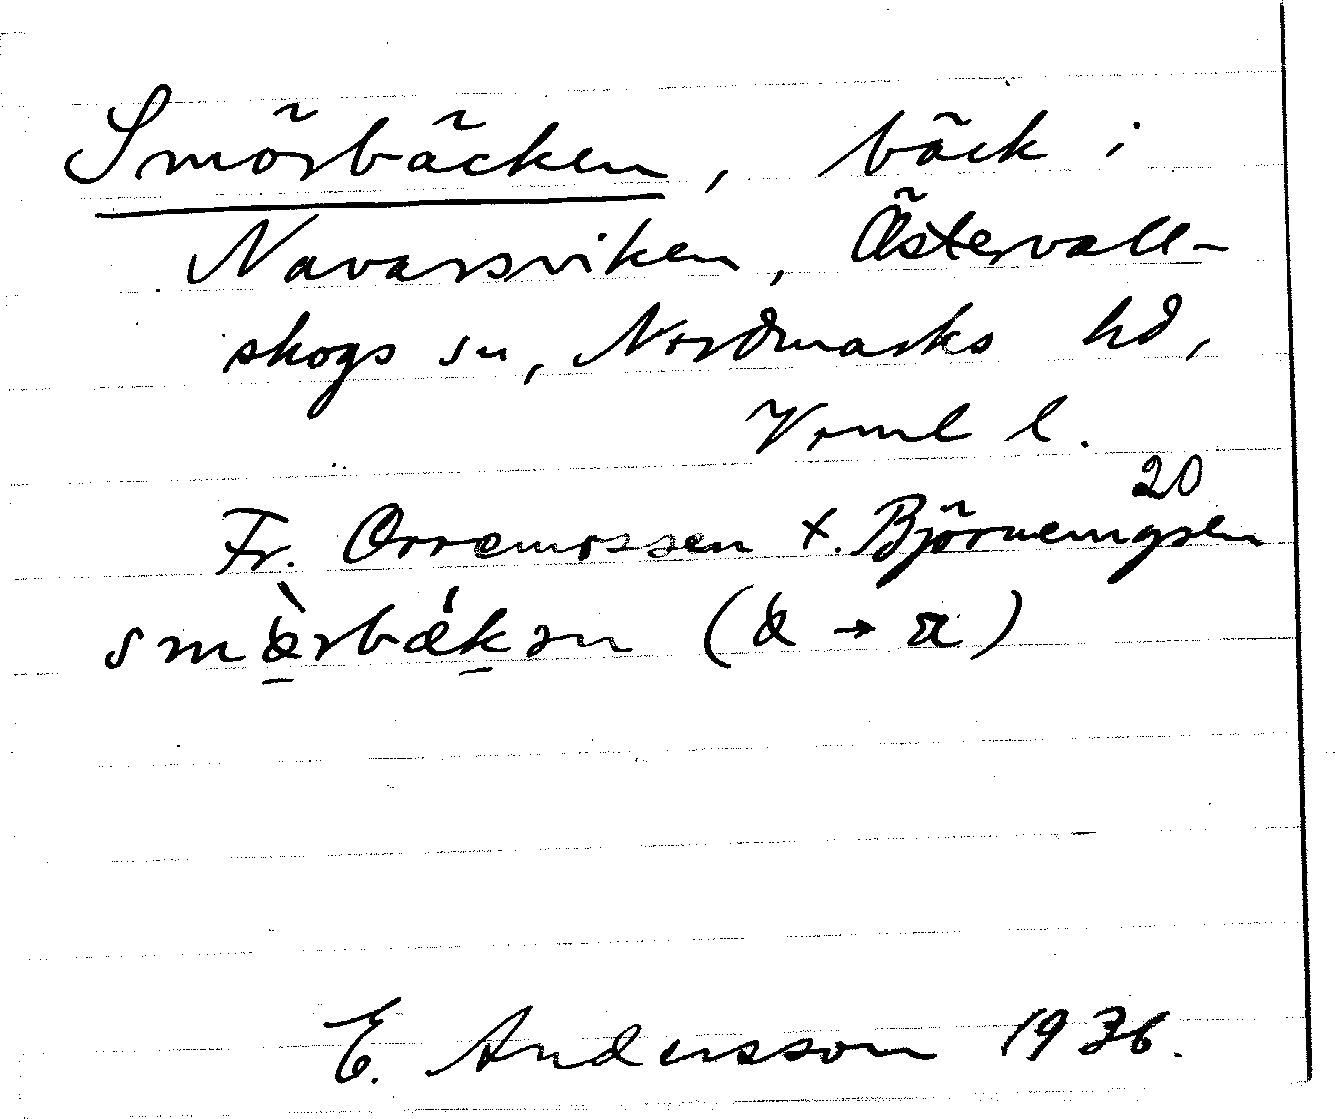 Smörbäcken, bäck i
Navarsviken, Östervall-
skogs sn, Nordmarks hd,
Vrml l.
20
Fr. Orremossen t. Björnemyren
(ὰ → æ)
E. Andersson 1936.